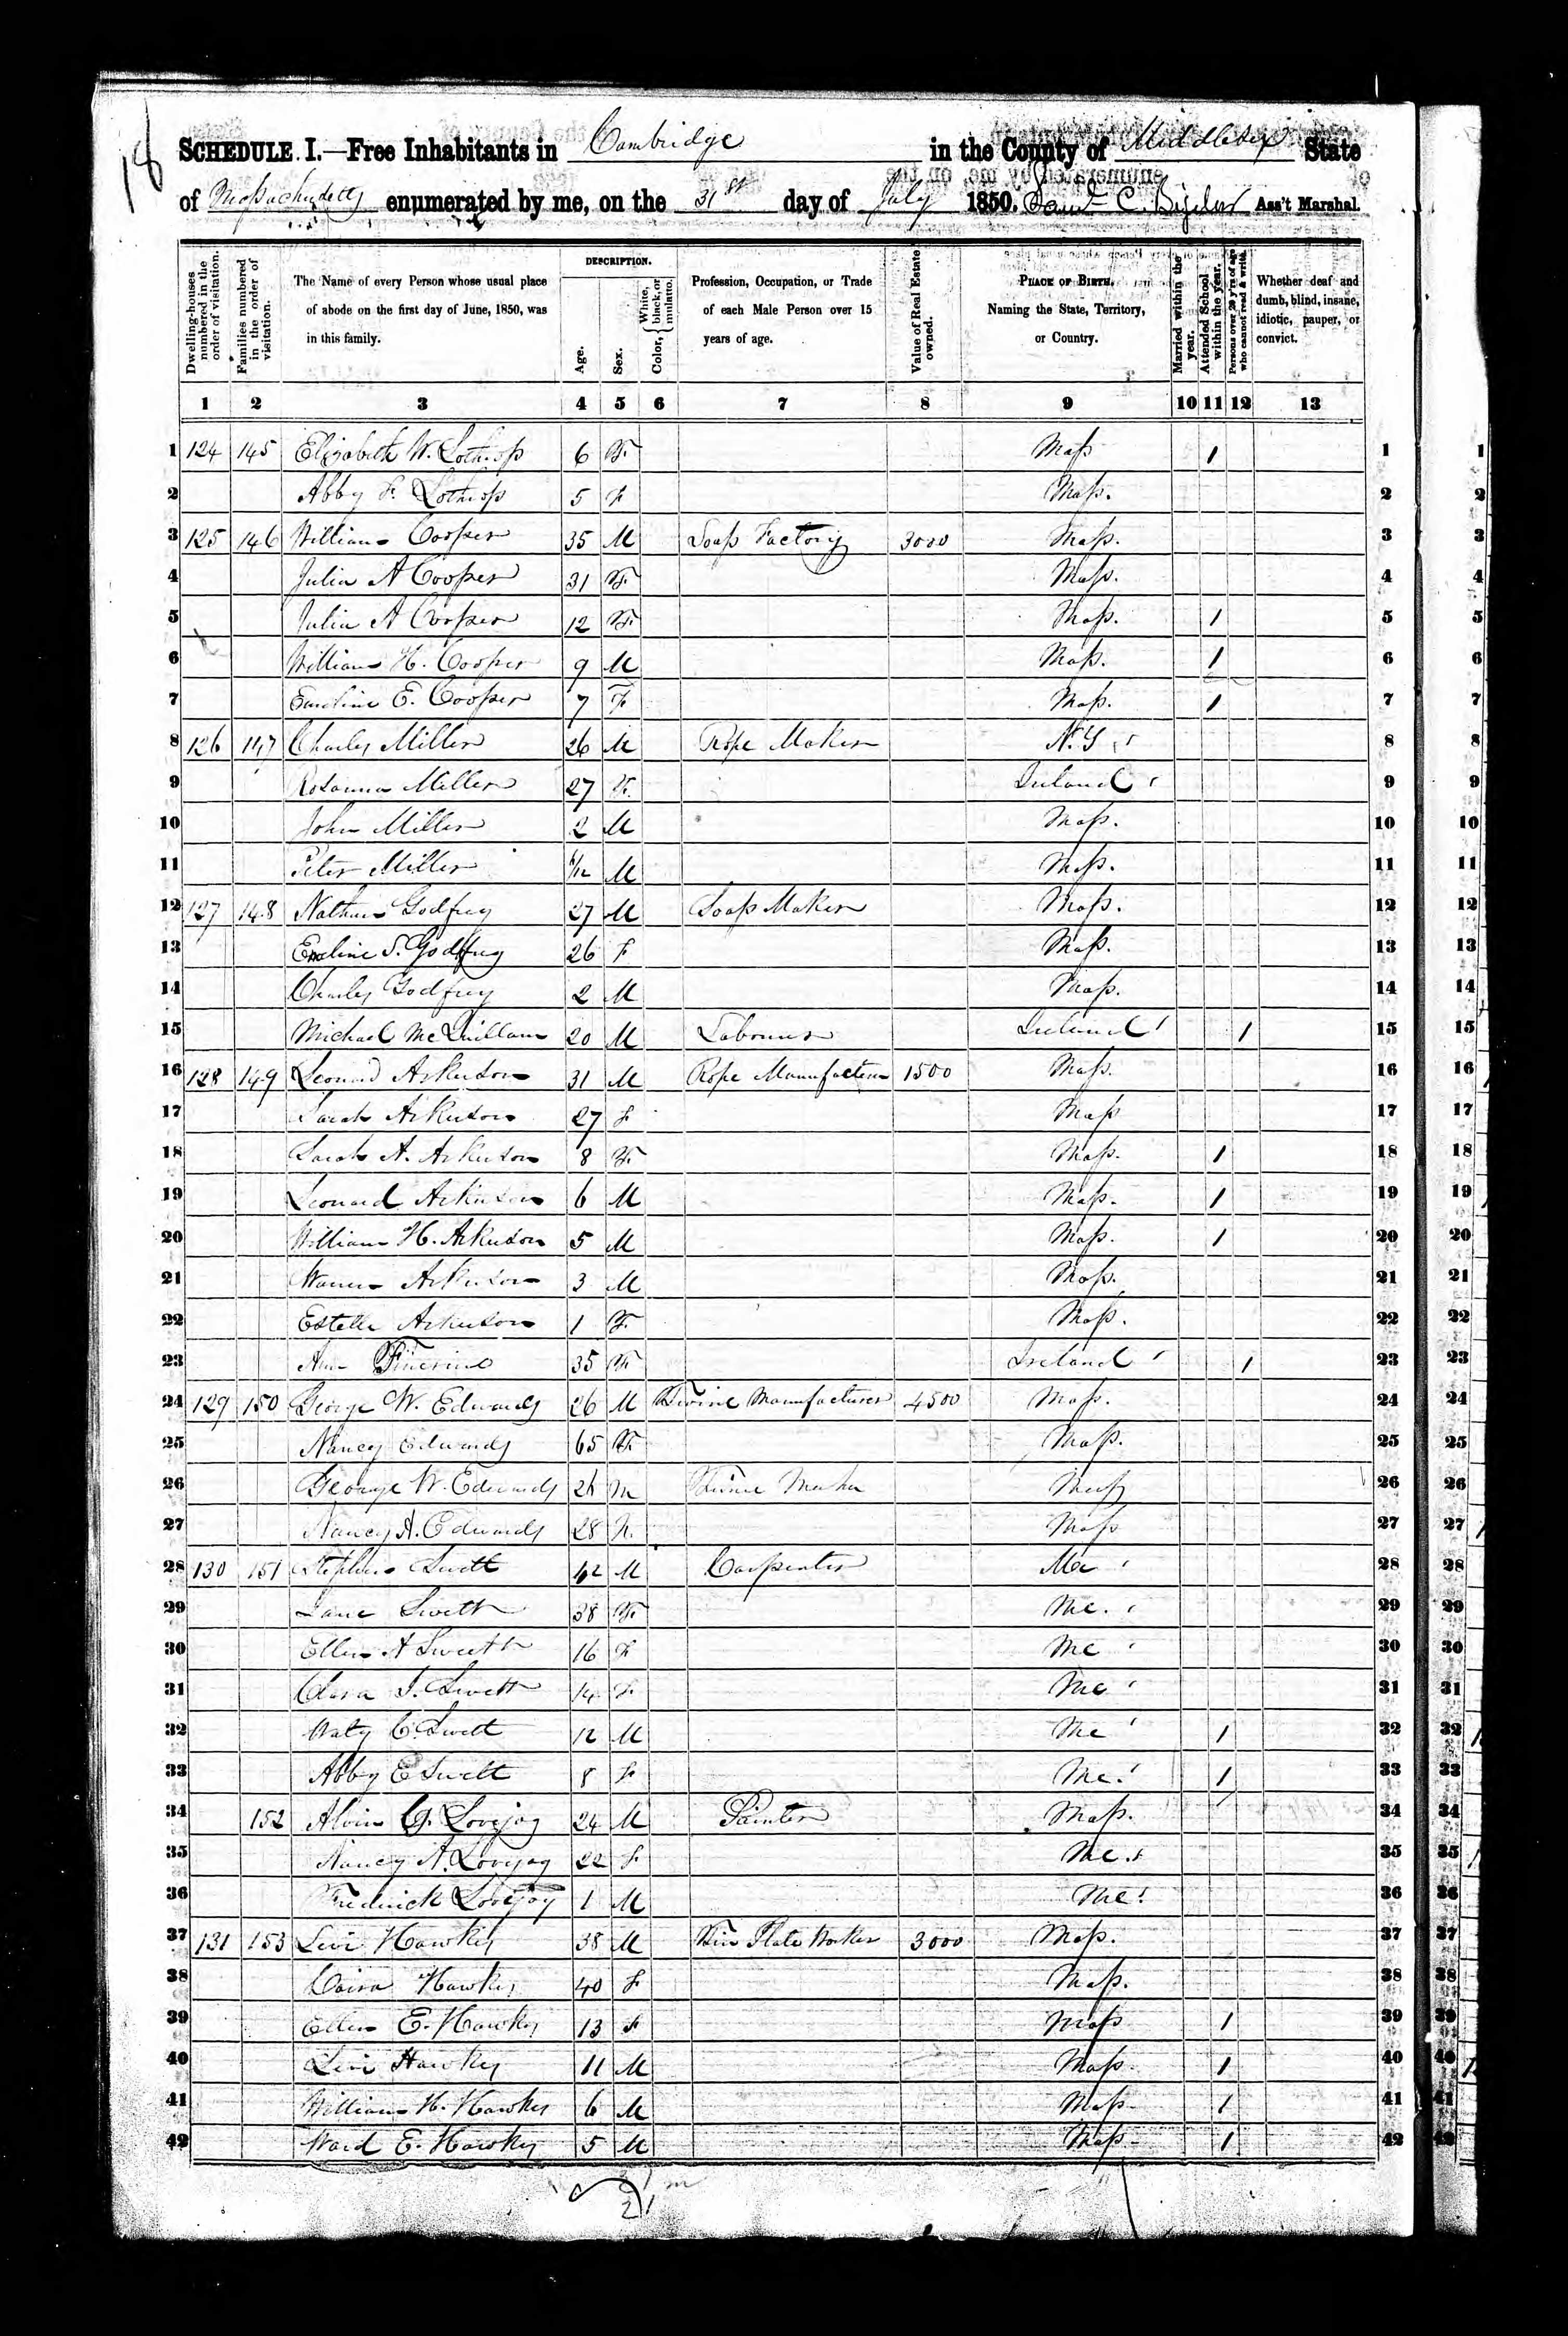 18
SCHEDULE I.—Free Inhabitants in Cambridge in the County of Middlesex State
of Massachusetts enumerated by me, on the 31st day of July 1850. Saml C. Bigelow Ass't Marshal.
Dwelling-houses numbered in the order of visitation.
Families numbered in the order of visitation.
The Name of every Person whose usual place of abode on the first day of June, 1850, was in this family.
DESCRIPTION.
Age.
Sex.
Color, { White, black, or mulatto.
Profession, Occupation, or Trade of each Male Person over 15 years of age.
Value of Real Estate owned.
PLACE OF BIRTH. Naming the State, Territory, or Country.
Married within the year.
Attended School within the year.
Persons over 20 y'rs of age who cannot read & write.
Whether deaf and dumb, blind, insane, idiotic, pauper, or convict.
1 2 3 4 5 6 7 8 9 10 11 12 13
1 124 145 Elizabeth W. Lothrop 6 F. Mass 1 1
2 Abby F. Lothrop 5 F Mass. 2
3 125 146 William Cooper 35 M Soap Factory 3000 Mass. 3
4 Julia A Cooper 31 F. Mass. 4
5 Julia A Cooper 12 F. Mass. 1 5
6 William H. Cooper 9 M Mass. 1 6
7 Emeline E. Cooper 7 F Mass. 1 7
8 126 147 Charles Miller 26 M Rope Maker N.Y 8
9 Rosanna Miller 27 F. Ireland 9
10 John Miller 2 M Mass. 10
11 Peter Miller /12 M Mass. 11
12 127 148 Nathan Godfrey 27 M Soap Maker Mass. 12
13 Emeline S. Godfrey 26 F Mass. 13
14 Charles Godfrey 2 M Mass. 14
15 Michael McQuillan 20 M Labourer Ireland 1 15
16 128 149 Leonard Arkerson 31 M Rope Manufacturer 1500 Mass. 16
17 Sarah Arkerson 27 F Mass 17
18 Sarah A. Arkerson 8 F. Mass. 1 18
19 Leonard Arkerson 6 M Mass. 1 19
20 William H. Arkerson 5 M Mass. 1 20
21 Warren Arkerson 3 M Mass. 21
22 Estelle Arkerson 1 F. Mass. 22
23 Ann 35 F. Ireland 1 23
24 129 150 George W. Edwards 26 M Twine Manufacturer 4500 Mass. 24
25 Nancy Edwards 65 F. Mass. 25
26 George W. Edwards 26 M Twine Maker Mass 26
27 Nancy A. Edwards 28 F. Mass 27
28 130 151 Stephen Swett 42 M Carpenter Me 28
29 Jane Swett 38 F. Me. 29
30 Ellen A Swett 16 F Me 30
31 Clara J. Swett 14 F. Me 31
32 C. Swett 12 M Me 1 32
33 Abby E Swett 8 F Me. 1 33
34 152 Alvin G. Lovejoy 24 M Painter Mass. 34
35 Nancy A. Lovejoy 22 F Me. 35
36 Frederick Lovejoy 1 M Me. 36
37 131 153 Levi Hawkes 38 M Tin Plate Worker 3000 Mass. 37
38 Hawkes 40 F Mass. 38
39 Ellen E. Hawkes 13 F Mass 1 39
40 Levi Hawkes 11 M Mass. 1 40
41 William H. Hawkes 6 M Mass. 1 41
42 Ward E. Hawkes 5 M Mass. 1 42
21 m
21